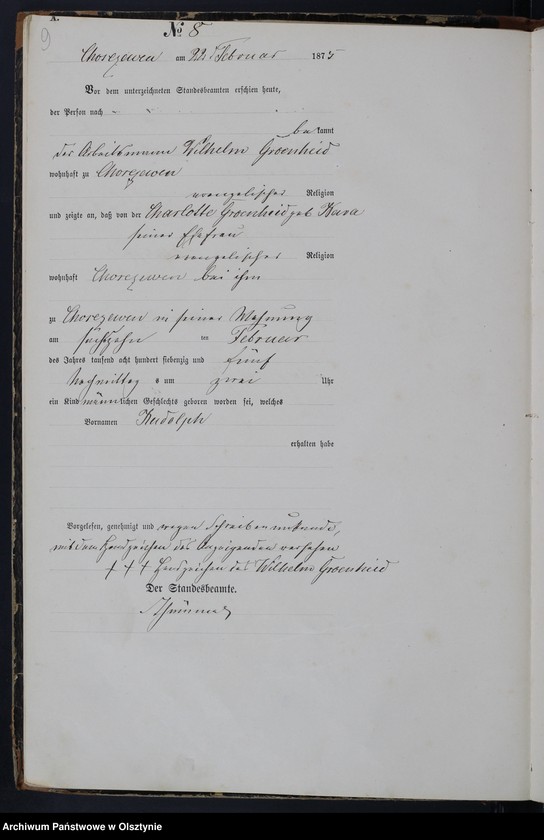 A.
9
№ 8
Chorczewen am 22 Februar 1875
Vor dem unterzeichneten Standesbeamten erschien heute,
der Person nach
be kannt
der Arbeitsmann Wilhelm Groenheid
wohnhaft zu Chorczewen
evangelischer Religion
und zeigte an, daß von der Charlotte Groenheid geb. Kara
seiner Ehefrau
evangelischer Religion
wohnhaft Chorczewen bei ihm
zu Chorczewen in seiner Wohnung
am ten Februar
des Jahres tausend acht hundert siebenzig und fünf
Nachmittag s um zwei Uhr
ein Kind männlichen Geschlechts geboren worden sei, welches
Vornamen Rudolph
erhalten habe
Vorgelesen, genehmigt und wegen Schreibensunkunde,
mit dem Handzeichen des Anzeigenden versehen
+ + + Handzeichen des Wilhelm Groenheid
Der Standesbeamte.
Archiwum Państwowe w Olsztynie